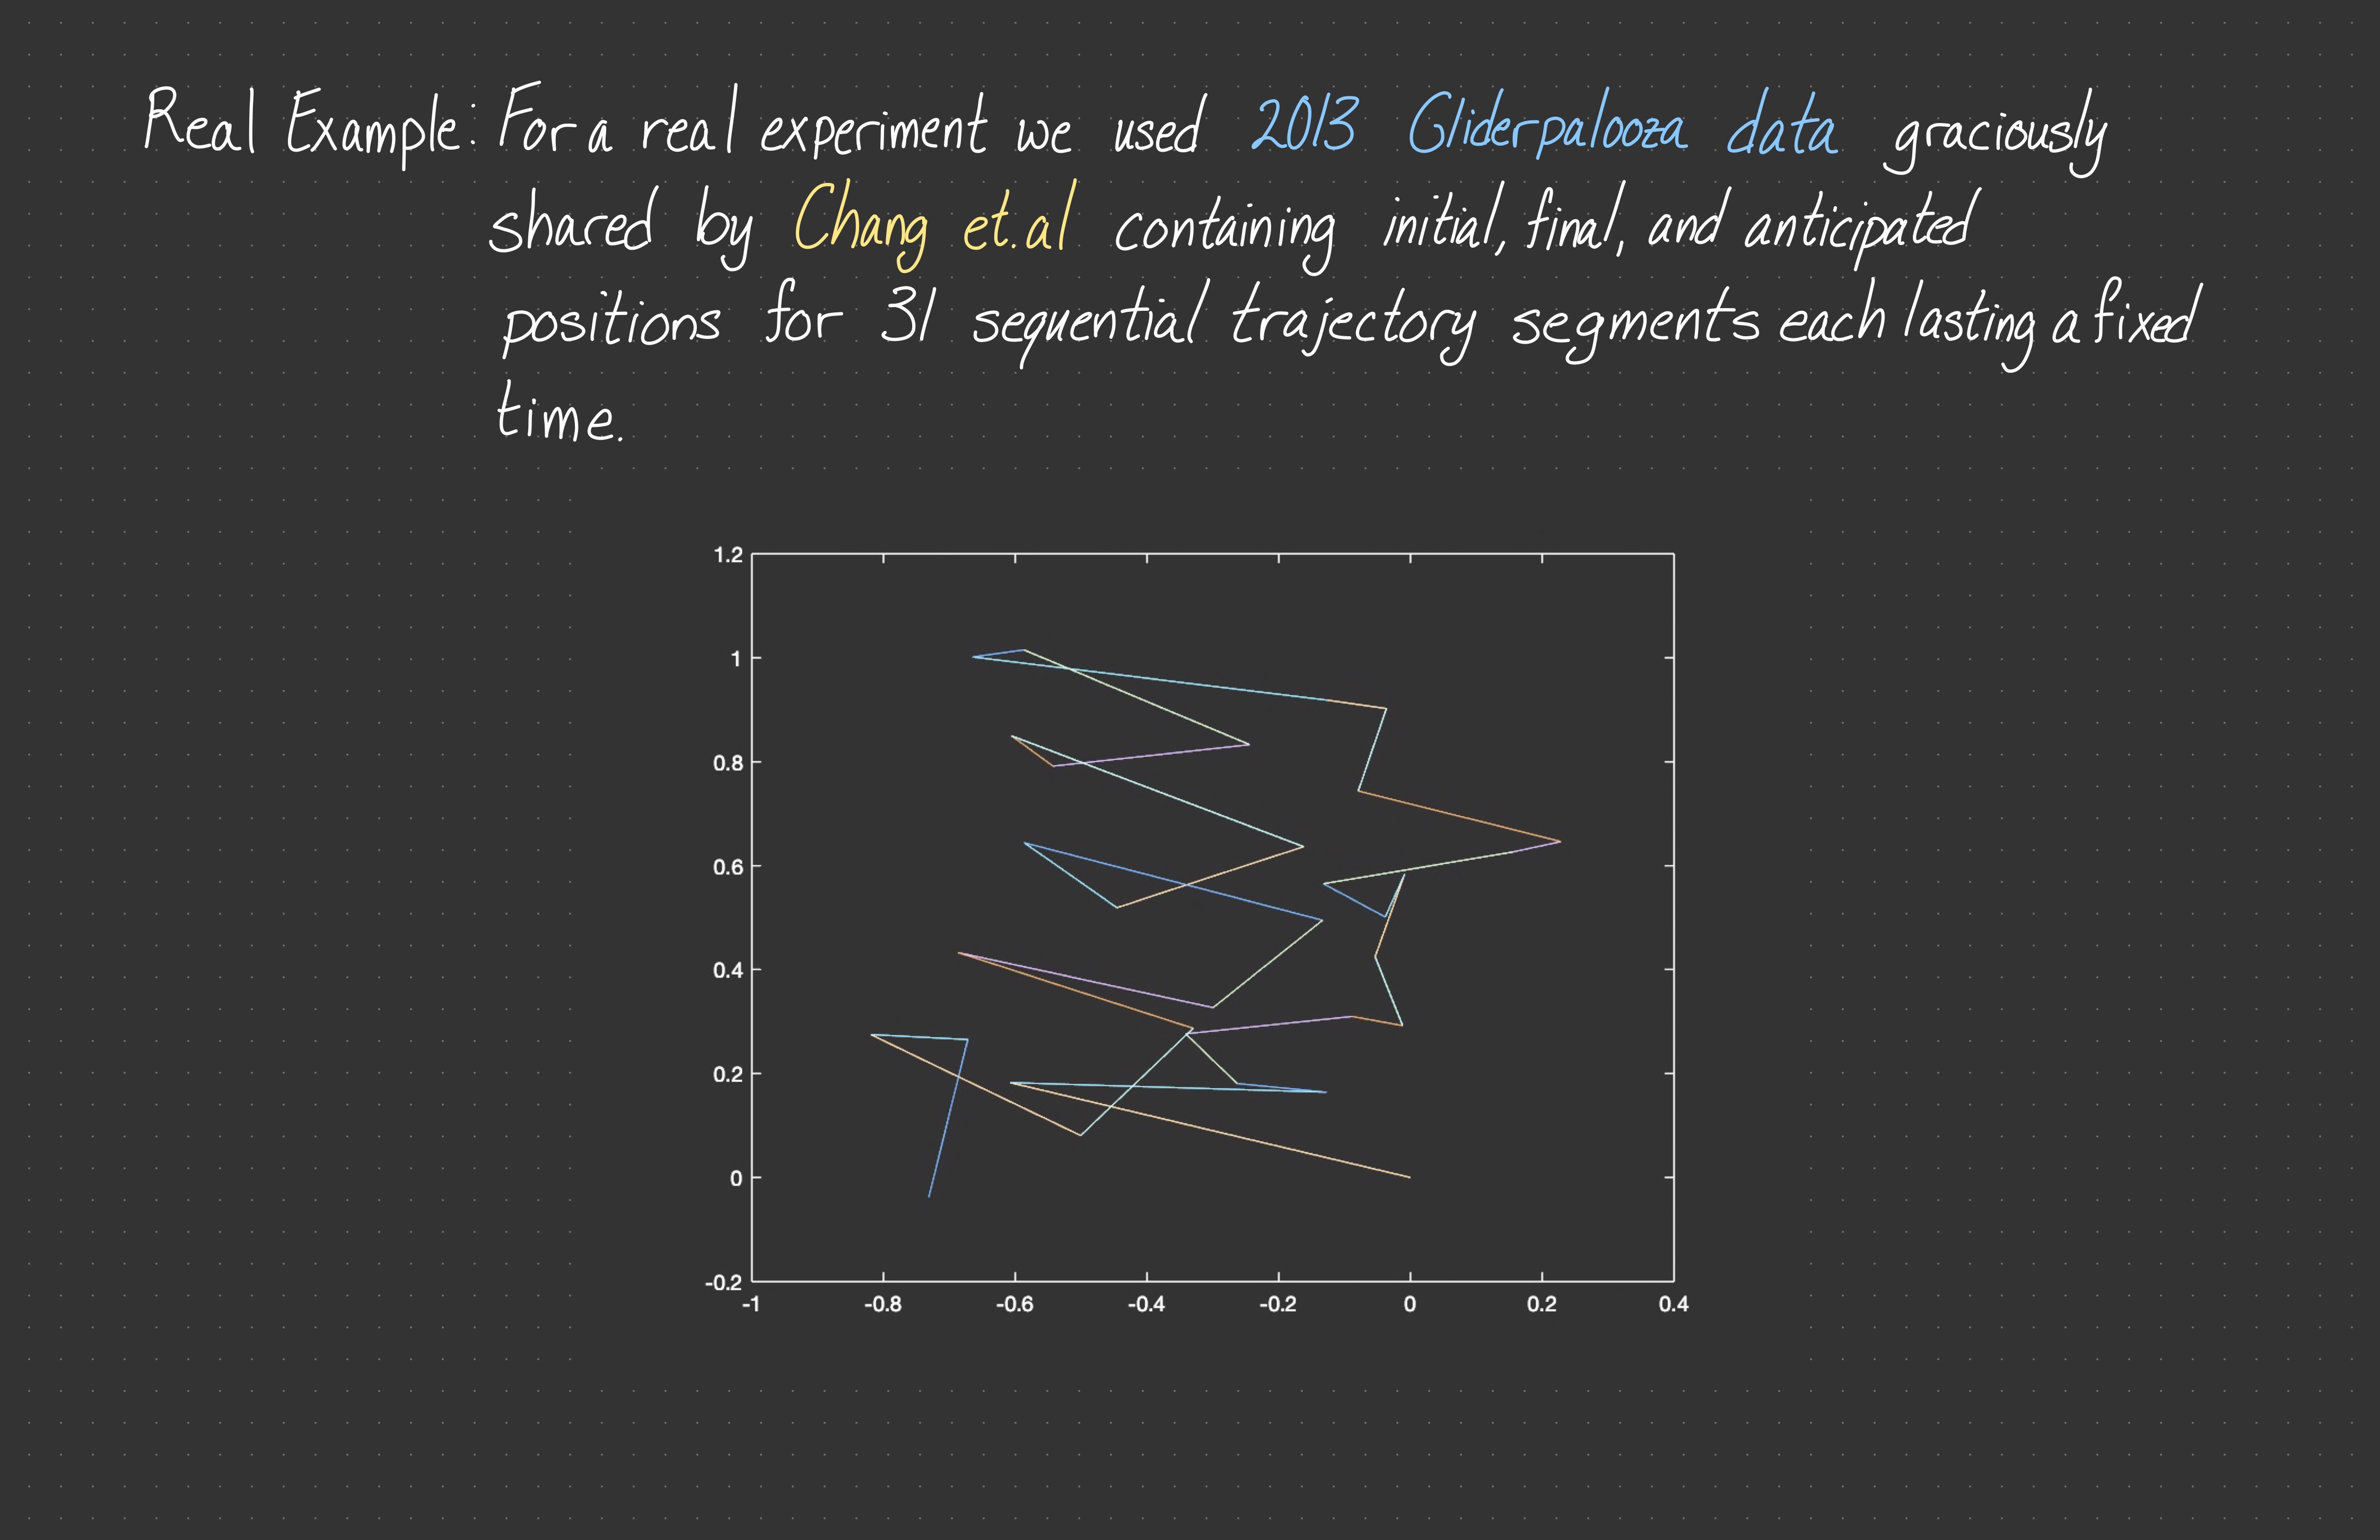 Real Example: For a real experiment we used 2013 Gliderpalooza data graciously
shared by Chang et.al containing initial, final, and anticipated
positions for 31 sequential trajectory segments each lasting a fixed
time.
1.2
1
0.8
0.6
0.4
0.2
0
-0.2
-1 -0.8 -0.6 -0.4 -0.2 0 0.2 0.4